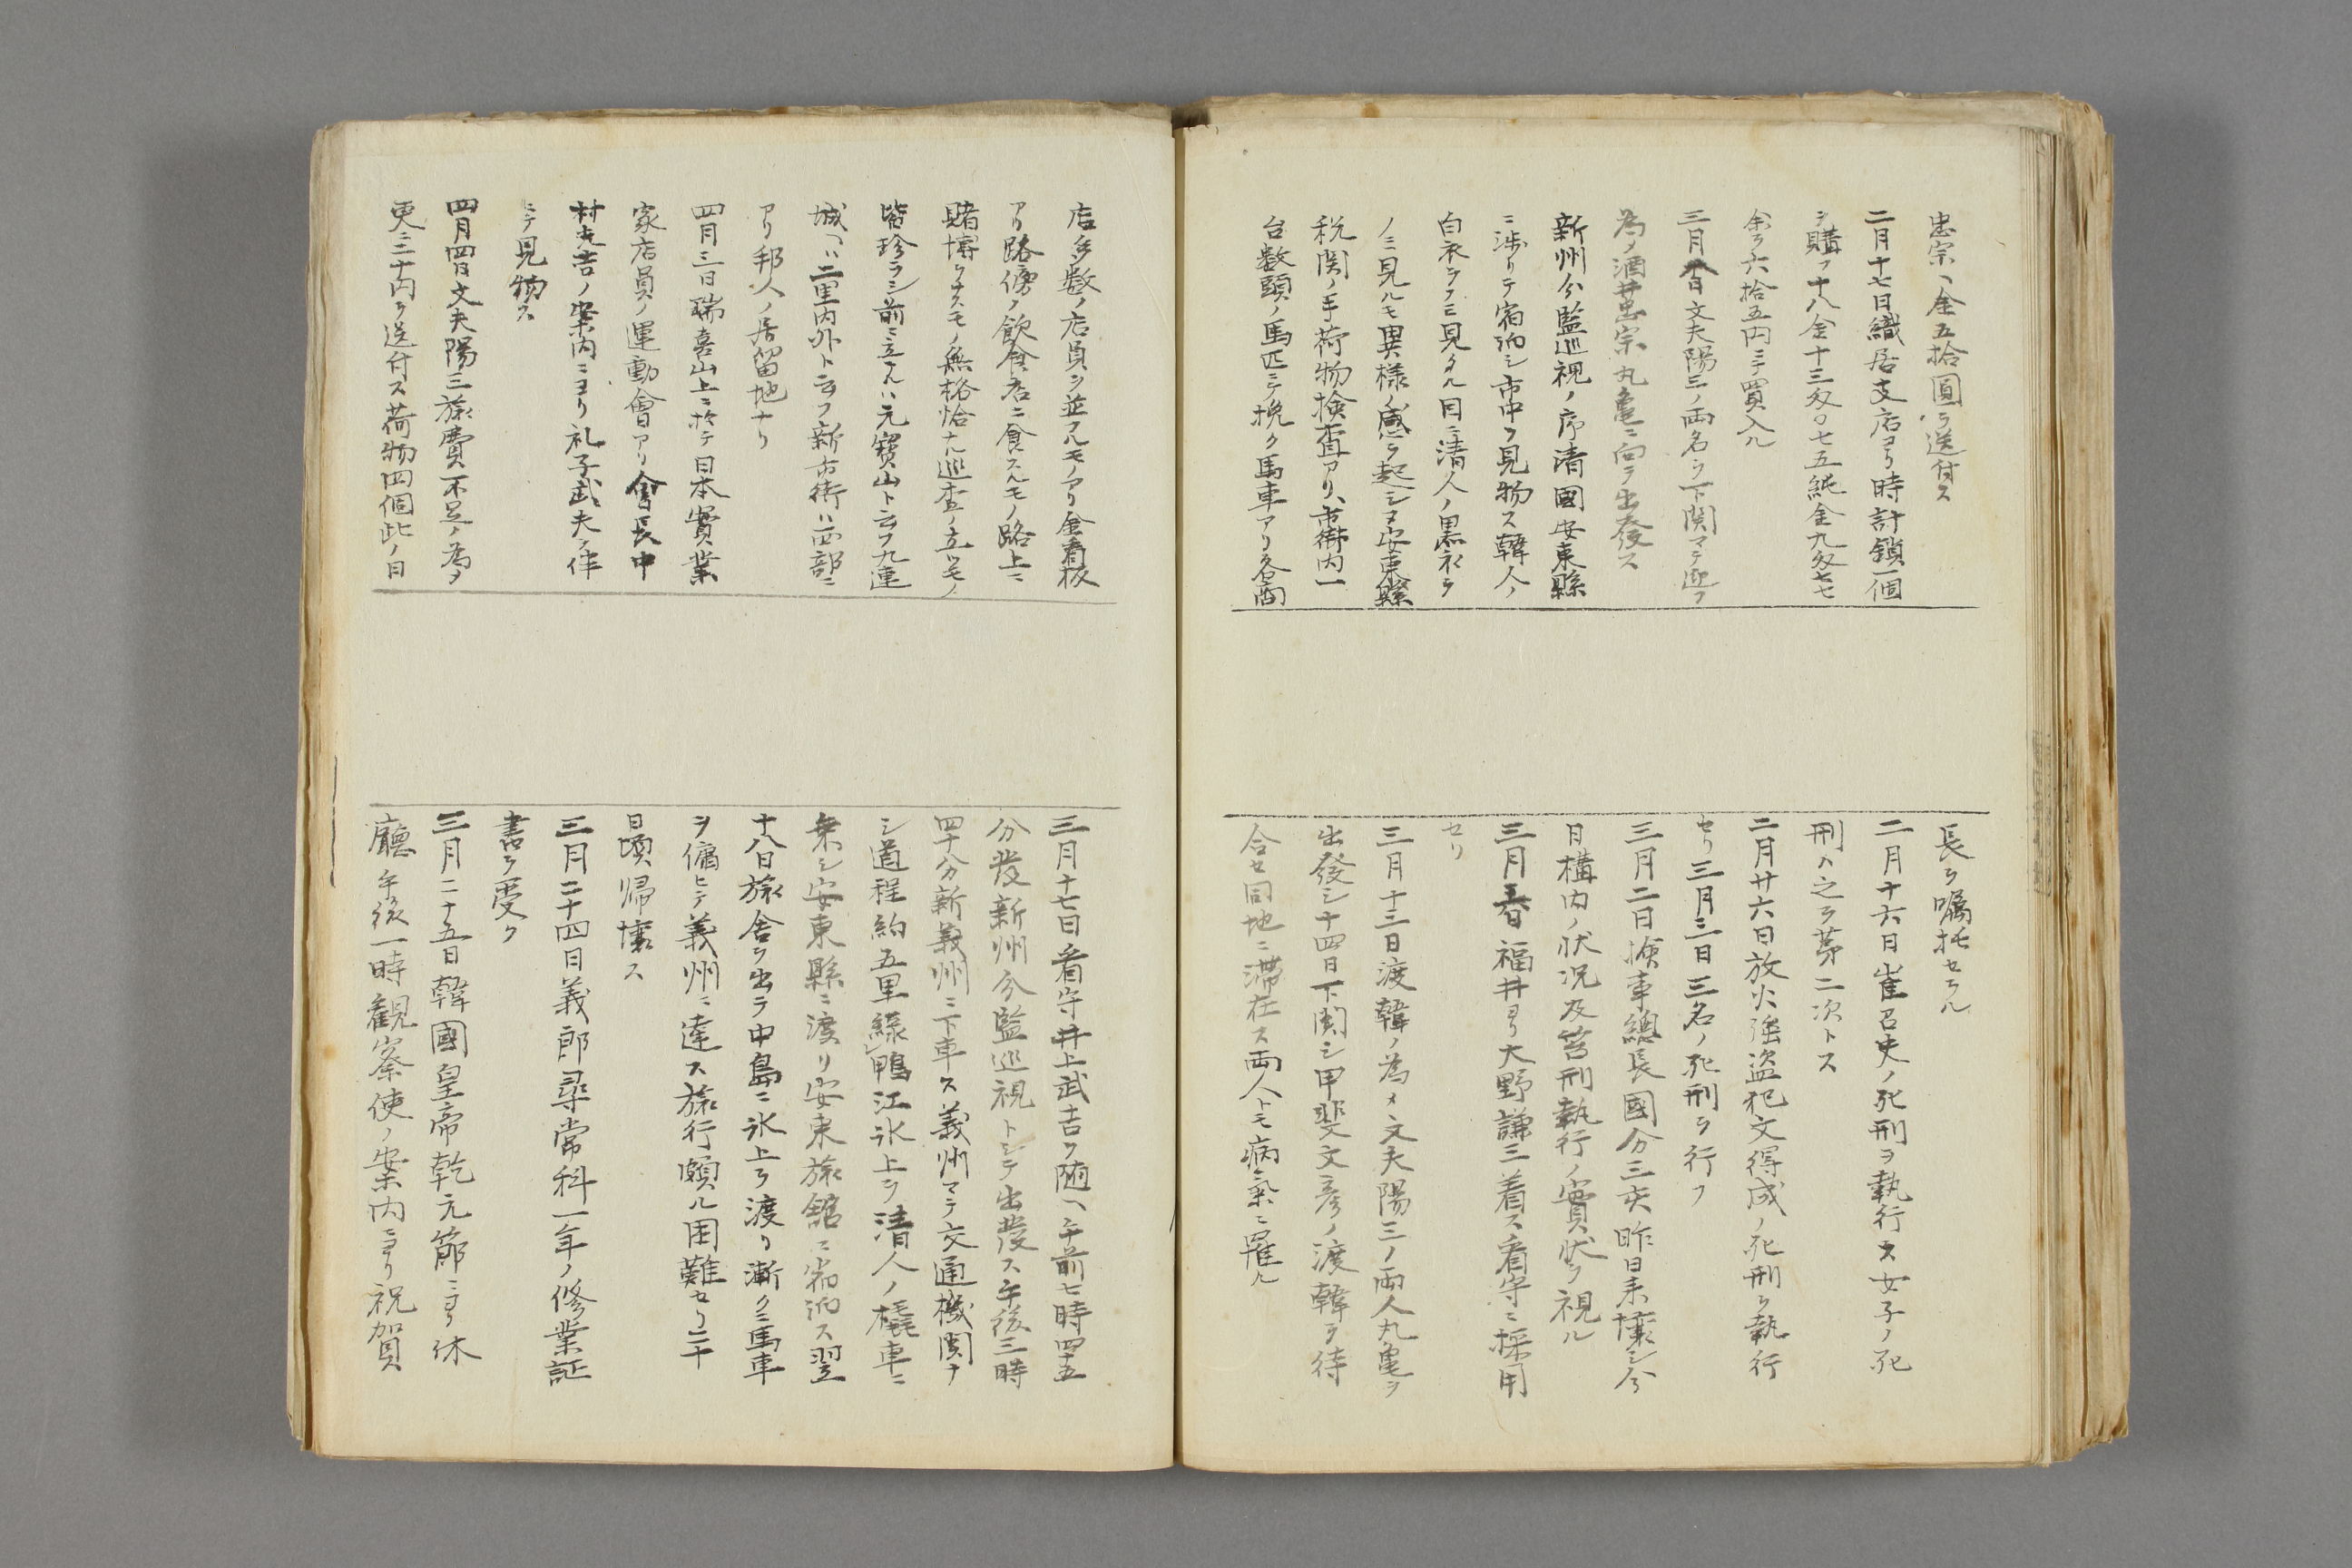 忠宗ヘ金五拾圓ヲ送付ス
二月十七日織居支店ヨリ時計鎖一個
ヲ購フ十八金十三匁〇七五純金九匁七七
余ヲ六拾五円ニテ買入ル
三月六日文夫陽三ノ両名ヲ下関マテ迎フ
為メ酒井忠宗丸亀ニ向ヲ出発ス
新州分監巡視ノ序清國安東縣
ニ渉リテ宿泊シ市中ヲ見物ス韓人ノ
白衣ヲノミ見タル目ニ清人ノ黒衣ヲ
ノミ見ルモ異様ノ感ヲ起シヌ安東縣
税関ノ手荷物検査アリ、市街内一
台数頭ノ馬匹ニテ挽ク馬車アリ各商
長ヲ嘱托セラル
二月十六日崔召史ノ死刑ヲ執行ス女子ノ死
刑ハ之ヲ第二次トス
二月廿六日放火強盗犯文得成ノ死刑ヲ執行
セリ三月三日三名ノ死刑ヲ行フ
三月二日検事總長國分三亥昨日来壌シ今
日構内ノ状況及笞刑執行ノ實状ヲ視ル
三月五日福井ヨリ大野謙三着ス看守ニ採用
セリ
三月十三日渡韓ノ為メ文夫陽三ノ両人丸亀ヲ
出發シ十四日下関シ甲斐文彦ノ渡韓ヲ待
合セ同地ニ滞在ス両人トモ病氣ニ罹ル
店多数ノ店員ヲ並フルモノアリ金看板
アリ路傍ノ飲食店ニ食スルモノ路上ニ
賭博ヲナスモノ無格恰ナル巡査ノ立ツモノ
皆珍ラシ前ニ立テルハ元寶山ト云フ九連
城ヘハ二里内外ト云フ新市街ハ西部ニ
アリ邦人ノ居留地ナリ
四月三日瑞喜山上ニ於テ日本實業
家店員ノ運動會アリ會長中
村光吉ノ案内ニヨリ礼子武夫ヲ伴
ニテ見物ス
四月四日文夫陽三旅費不足ノ為メ
更ニ二十円ヲ送付ス荷物四個此ノ日
三月十七日看守井上武吉ヲ随ヘ午前七時四五
分發新州分監巡視トシテ出發ス午後三時
四十分新義州ニ下車ス義州マテ交通機関ナ
シ道程約五里緑鴨江氷上ヲ清人ノ橇車ニ
乗シ安東縣ニ渡リ安東旅舘ニ宿泊ス翌
十八日旅舎ヲ出テ中島ニ氷上ヲ渡リ漸クニ馬車
ヲ傭ヒテ義州ニ達ス旅行頗ル困難セリ二十
日頃帰壌ス
三月二十四日義郎尋常科一年ノ修業証
書ヲ受ク
三月二十五日韓國皇帝乾元節ニヨリ休
廳午後一時観察使ノ案内ニヨリ祝賀